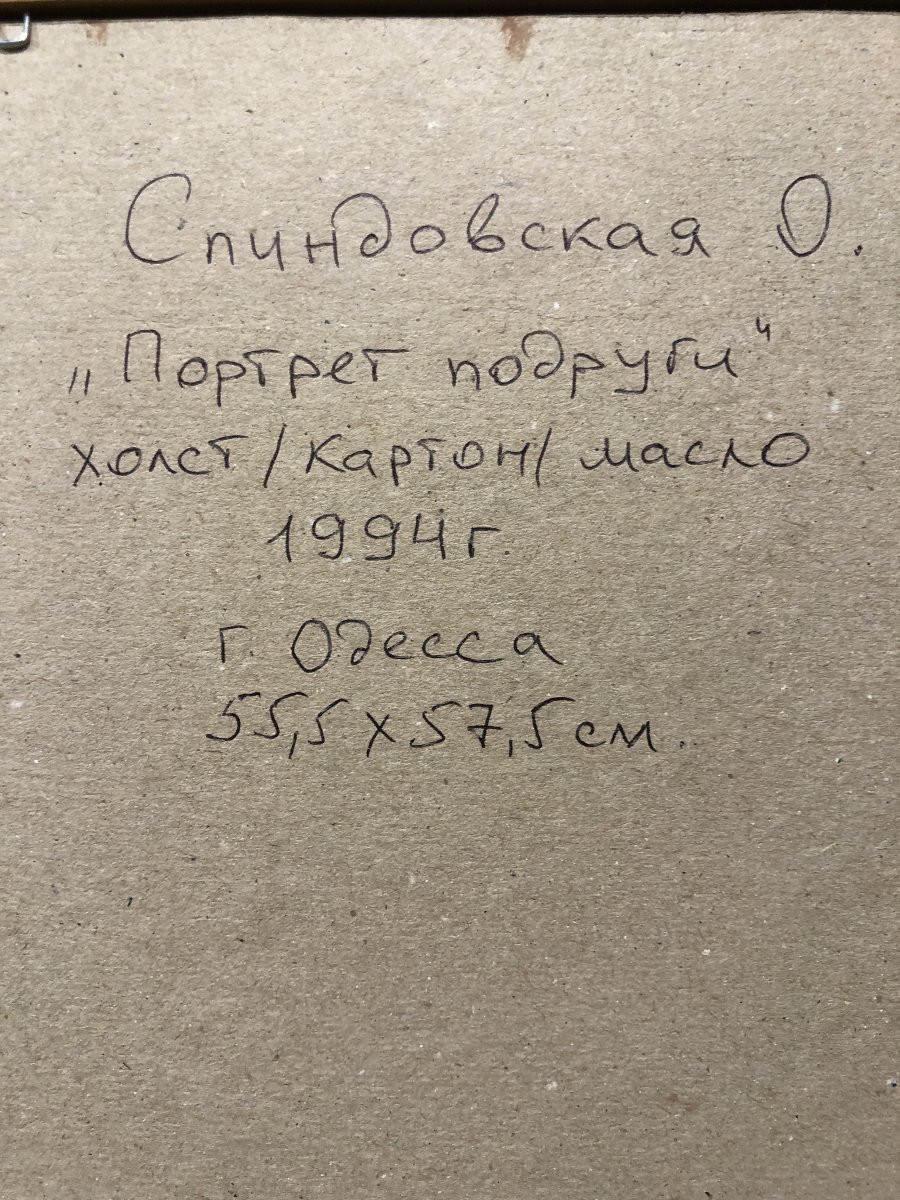 Спиндовская О.
„Портрет подруги"
холст/картон/масло
1994г.
г. Одесса
55,5х57,5см.